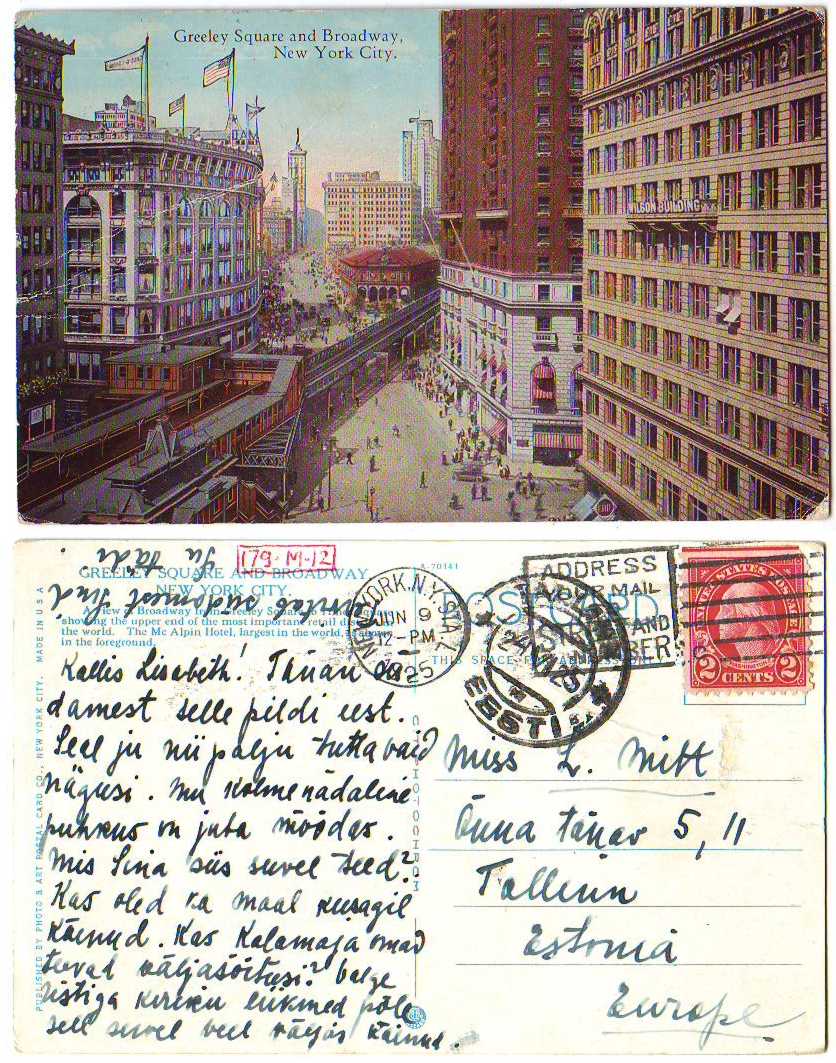 Greeley Square and Broadway,
New York City.
WILSON BUILDING
179-M-12
GREELEY SQUARE AND BROADWAY
NEW YORK CITY.
A view of Broadway from Greeley Square
showing the upper end of the most important retail
the world. The Mc Alpin Hotel, largest in the world,
in the foreground.
A-70141
POST CARD
THIS SPACE FOR ADDRESS ONLY
NEW YORK, N.Y. STA. L
JUN 9
12-PM
1925
ADDRESS
YOUR MAIL
STREET AND
NUMBER
TALLINN
EESTI
UNITED STATES POSTAGE
WASHINGTON
2 CENTS 2
MADE IN U.S.A
PUBLISHED BY PHOTO & ART POSTAL CARD CO., NEW YORK CITY.
Kallis Lisabeth! Tänan
damest selle pildi eest.
Seal ju nii palju tuttavaid
nägusi. Mu kolmenädaline
puhkus on juba möödas.
Mis Sina siis suvel teed?
Kas oled ka maal kusagil
käinud. Kas Kalamaja omad
teevad väljasõitusi? Valge
ristiga kiriku liikmed pole
sell suvel veel väljas käinud.
tervitab Sind
Su tädi
Miss L. Mitt
Õnna tänav 5, 11
Tallinn
Estonia
Europe